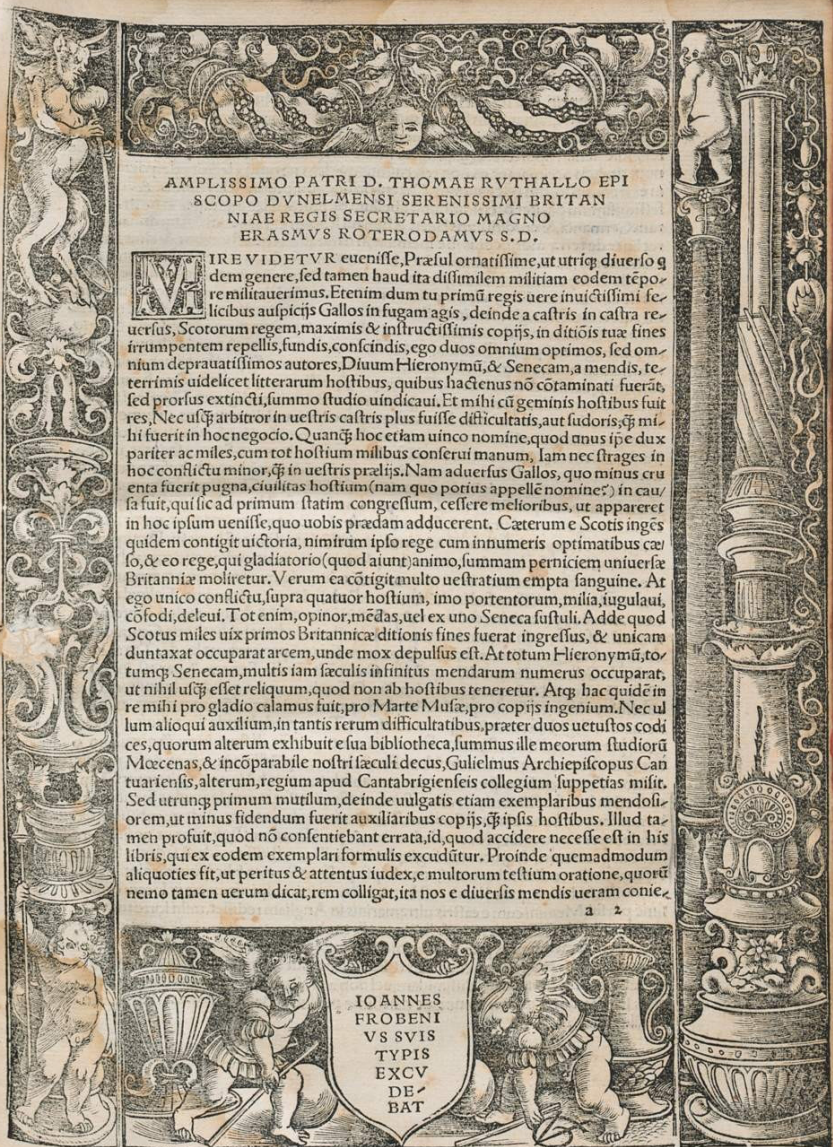 AMPLISSIMO PATRI D. THOMAE RVTHALLO EPI
SCOPO DVNELMENSI SERENISSIMI BRITAN
NIAE REGIS SECRETARIO MAGNO
ERASMVS ROTERODAMVS S.D.
MIRE VIDETVR eueniſſe,Præſul ornatiſſime,ut utriqꝫ diuerſo q
dem genere,ſed tamen haud ita diſſimilem militiam eodem tẽpo-
re militauerimus.Etenim dum tu primũ regis uere inuictiſſimi fe-
licibus auſpicijs Gallos in fugam agis, deinde a caſtris in caſtra re-
uerſus, Scotorum regem,maximis & inſtructiſſimis copijs, in ditiõis tuæ fines
irrumpentem repellis,fundis,conſcindis,ego duos omnium optimos, ſed om-
nium deprauatiſſimos autores,Diuum Hieronymũ,& Senecam,a mendis, te-
terrimis uidelicet litterarum hoſtibus, quibus hactenus nõ cõtaminati fuerãt,
ſed prorſus extincti,ſummo ſtudio uindicaui.Et mihi cũ geminis hoſtibus fuit
res,Nec uſqꝫ arbitror in ueſtris caſtris plus fuiſſe difficultatis,aut ſudoris,ꝙ̃ mi-
hi fuerit in hoc negocio. Quanꝙ̃ hoc etiam uinco nomine,quod unus ip̃e dux
pariter ac miles,cum tot hoſtium milibus conſerui manum, Iam nec ſtrages in
hoc conflictu minor,ꝙ̃ in ueſtris prælijs.Nam aduerſus Gallos, quo minus cru
enta fuerit pugna,ciuilitas hoſtium(nam quo potius appellẽ nomine?) in cau/
ſa fuit,qui ſic ad primum ſtatim congreſſum, ceſſere melioribus, ut appareret
in hoc ipſum ueniſſe,quo uobis prædam adducerent. Cæterum e Scotis ingẽs
quidem contigit uictoria, nimirum ipſo rege cum innumeris optimatibus cæ/
ſo,& eo rege,qui gladiatorio(quod aiunt)animo,ſummam perniciem uniuerſæ
Britanniæ moliretur. Verum ea cõtigit multo ueſtratium empta ſanguine. At
ego unico conflictu,ſupra quatuor hoſtium, imo portentorum,milia,iugulaui,
cõfodi,deleui.Tot enim,opinor,mẽdas,uel ex uno Seneca ſuſtuli. Adde quod
Scotus miles uix primos Britannicæ ditionis fines fuerat ingreſſus, & unicam
duntaxat occuparat arcem,unde mox depulſus eſt. At totum Hieronymũ,to-
tumqꝫ Senecam,multis iam ſæculis infinitus mendarum numerus occuparat,
ut nihil uſqꝫ eſſet reliquum,quod non ab hoſtibus teneretur. Atqꝫ hac quidẽ in
re mihi pro gladio calamus fuit,pro Marte Muſæ,pro copijs ingenium.Nec ul
lum alioqui auxilium,in tantis rerum difficultatibus,præter duos uetuſtos codi
ces,quorum alterum exhibuit e ſua bibliotheca,ſummus ille meorum ſtudiorũ
Mœcenas,& incõparabile noſtri ſæculi decus,Gulielmus Archiepiſcopus Can
tuarienſis,alterum,regium apud Cantabrigienſeis collegium ſuppetias miſit.
Sed utrunqꝫ primum mutilum,deinde uulgatis etiam exemplaribus mendoſi-
orem,ut minus fidendum fuerit auxiliaribus copijs,ꝙ̃ ipſis hoſtibus. Illud ta-
men profuit,quod nõ conſentiebant errata,id,quod accidere neceſſe eſt in his
libris,qui ex eodem exemplari formulis excudũtur. Proinde quemadmodum
aliquoties fit,ut peritus & attentus iudex,e multorum teſtium oratione,quorũ
nemo tamen uerum dicat,rem colligat,ita nos e diuerſis mendis ueram conie-
a 2
IOANNES
FROBENI
VS SVIS
TYPIS
EXCV
DE-
BAT